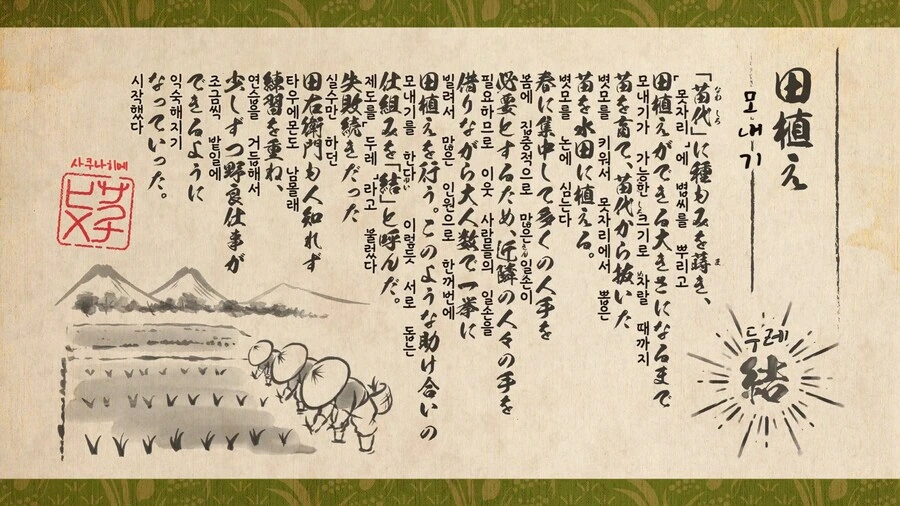 田植え
모내기
「苗代」に種もみを蒔き、
「못자리」에 볍씨를 뿌리고
田植えができる大きさになるまで
모내기가 가능한 크기로 자랄 때까지
苗を育て、苗代から抜いた
볏모를 키워서 못자리에서 뽑은
苗を水田に植える。
볏모를 논에 심는다
春に集中して多くの人手を
봄에 집중적으로 많은 일손이
必要とするため、近隣の人々の手を
필요하므로 이웃 사람들의 일손을
借りながら大人数で一挙に
빌려서 많은 인원으로 한꺼번에
田植えを行う。このような助け合いの
모내기를 한다 이렇듯 서로 돕는
仕組みを「結」と呼んだ。
제도를 「두레」라고 불렀다
失敗続きだった
실수만 하던
田右衛門も人知れず
타우에몬도 남몰래
練習を重ね、
연습을 거듭해서
少しずつ野良仕事が
조금씩 밭일에
できるように
익숙해지기
なっていった。
시작했다
두레
結
사쿠나히메
サクナヒメ